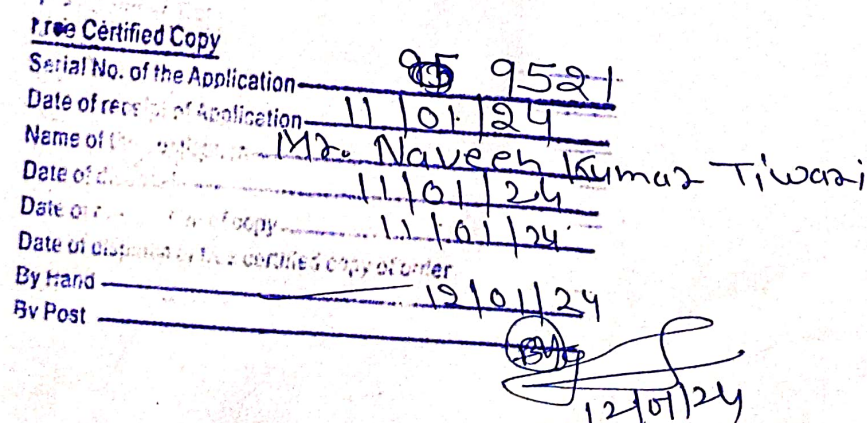 Free Certified Copy
Serial No. of the Application 9521
Date of receipt of Application 11/01/24
Name of Mr. Naveen Kumar Tiwari
Date of 11/01/24
Date of copy 11/01/24
Date of certified copy of order
By Hand 12/01/24
By Post
12/01/24